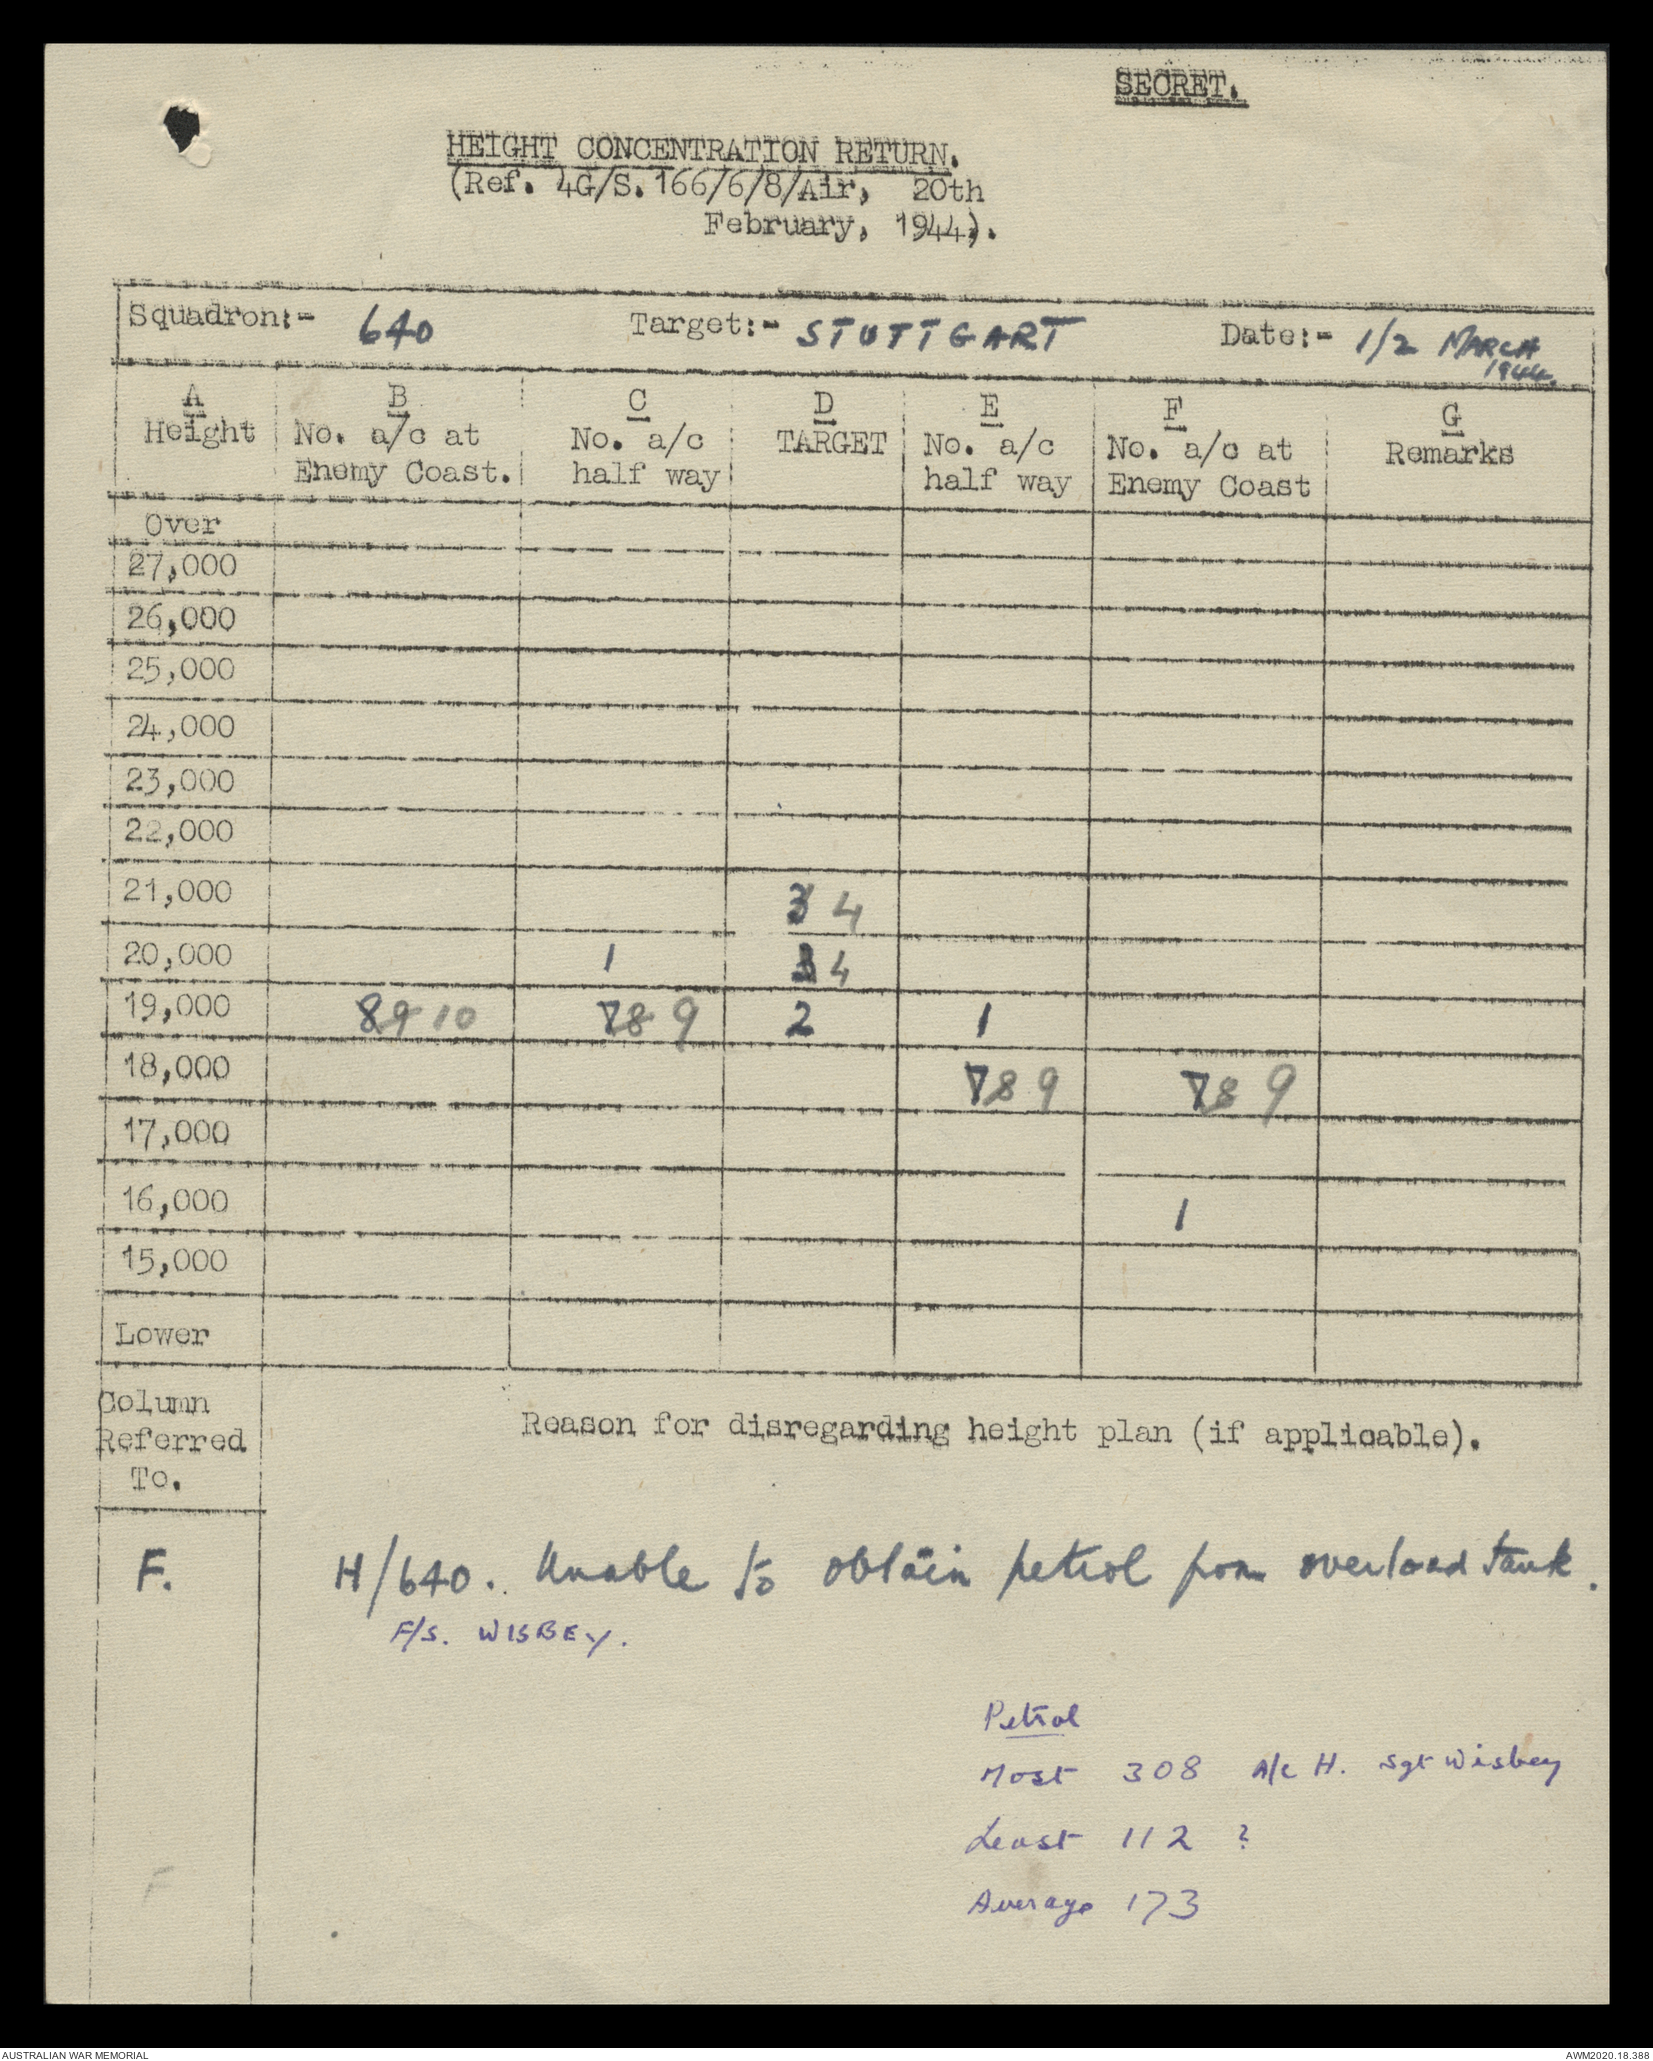 SECRET.
HEIGHT CONCENTRATION RETURN.
(Ref. 4G/S.166/6/8/Air, 20th
February, 1944).
Squadron:- 640 Target:- STUTTGART Date:- 1/2 MARCH
1944.
A B C D E F G
Height No. a/c at No. a/c TARGET No. a/c No. a/c at Remarks
Enemy Coast. half way half way Enemy Coast
Over
27,000
26,000
25,000
24,000
23,000
22,000
21,000 3 4
20,000 1 3 4
19,000 8 9 10 7 8 9 2 1
18,000 7 8 9 7 8 9
17,000
16,000 1
15,000
Lower
Column
Referred
To.
Reason for disregarding height plan (if applicable).
F. H/640. Unable to obtain petrol from overload tank.
F/S. WISBEY.
Petrol
Most 308 A/c H. Sgt Wisbey
Least 112 ?
Average 173
F
AUSTRALIAN WAR MEMORIAL AWM2020.18.388